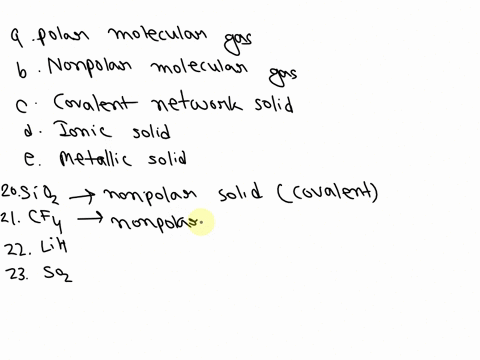 a. polar molecular gas
b. Nonpolar molecular gas
c. Covalent network solid
d. Ionic solid
e. Metallic solid
20. SiO2 → nonpolar solid (covalent)
21. CF4 → nonpolar
22. LiH
23. SO2